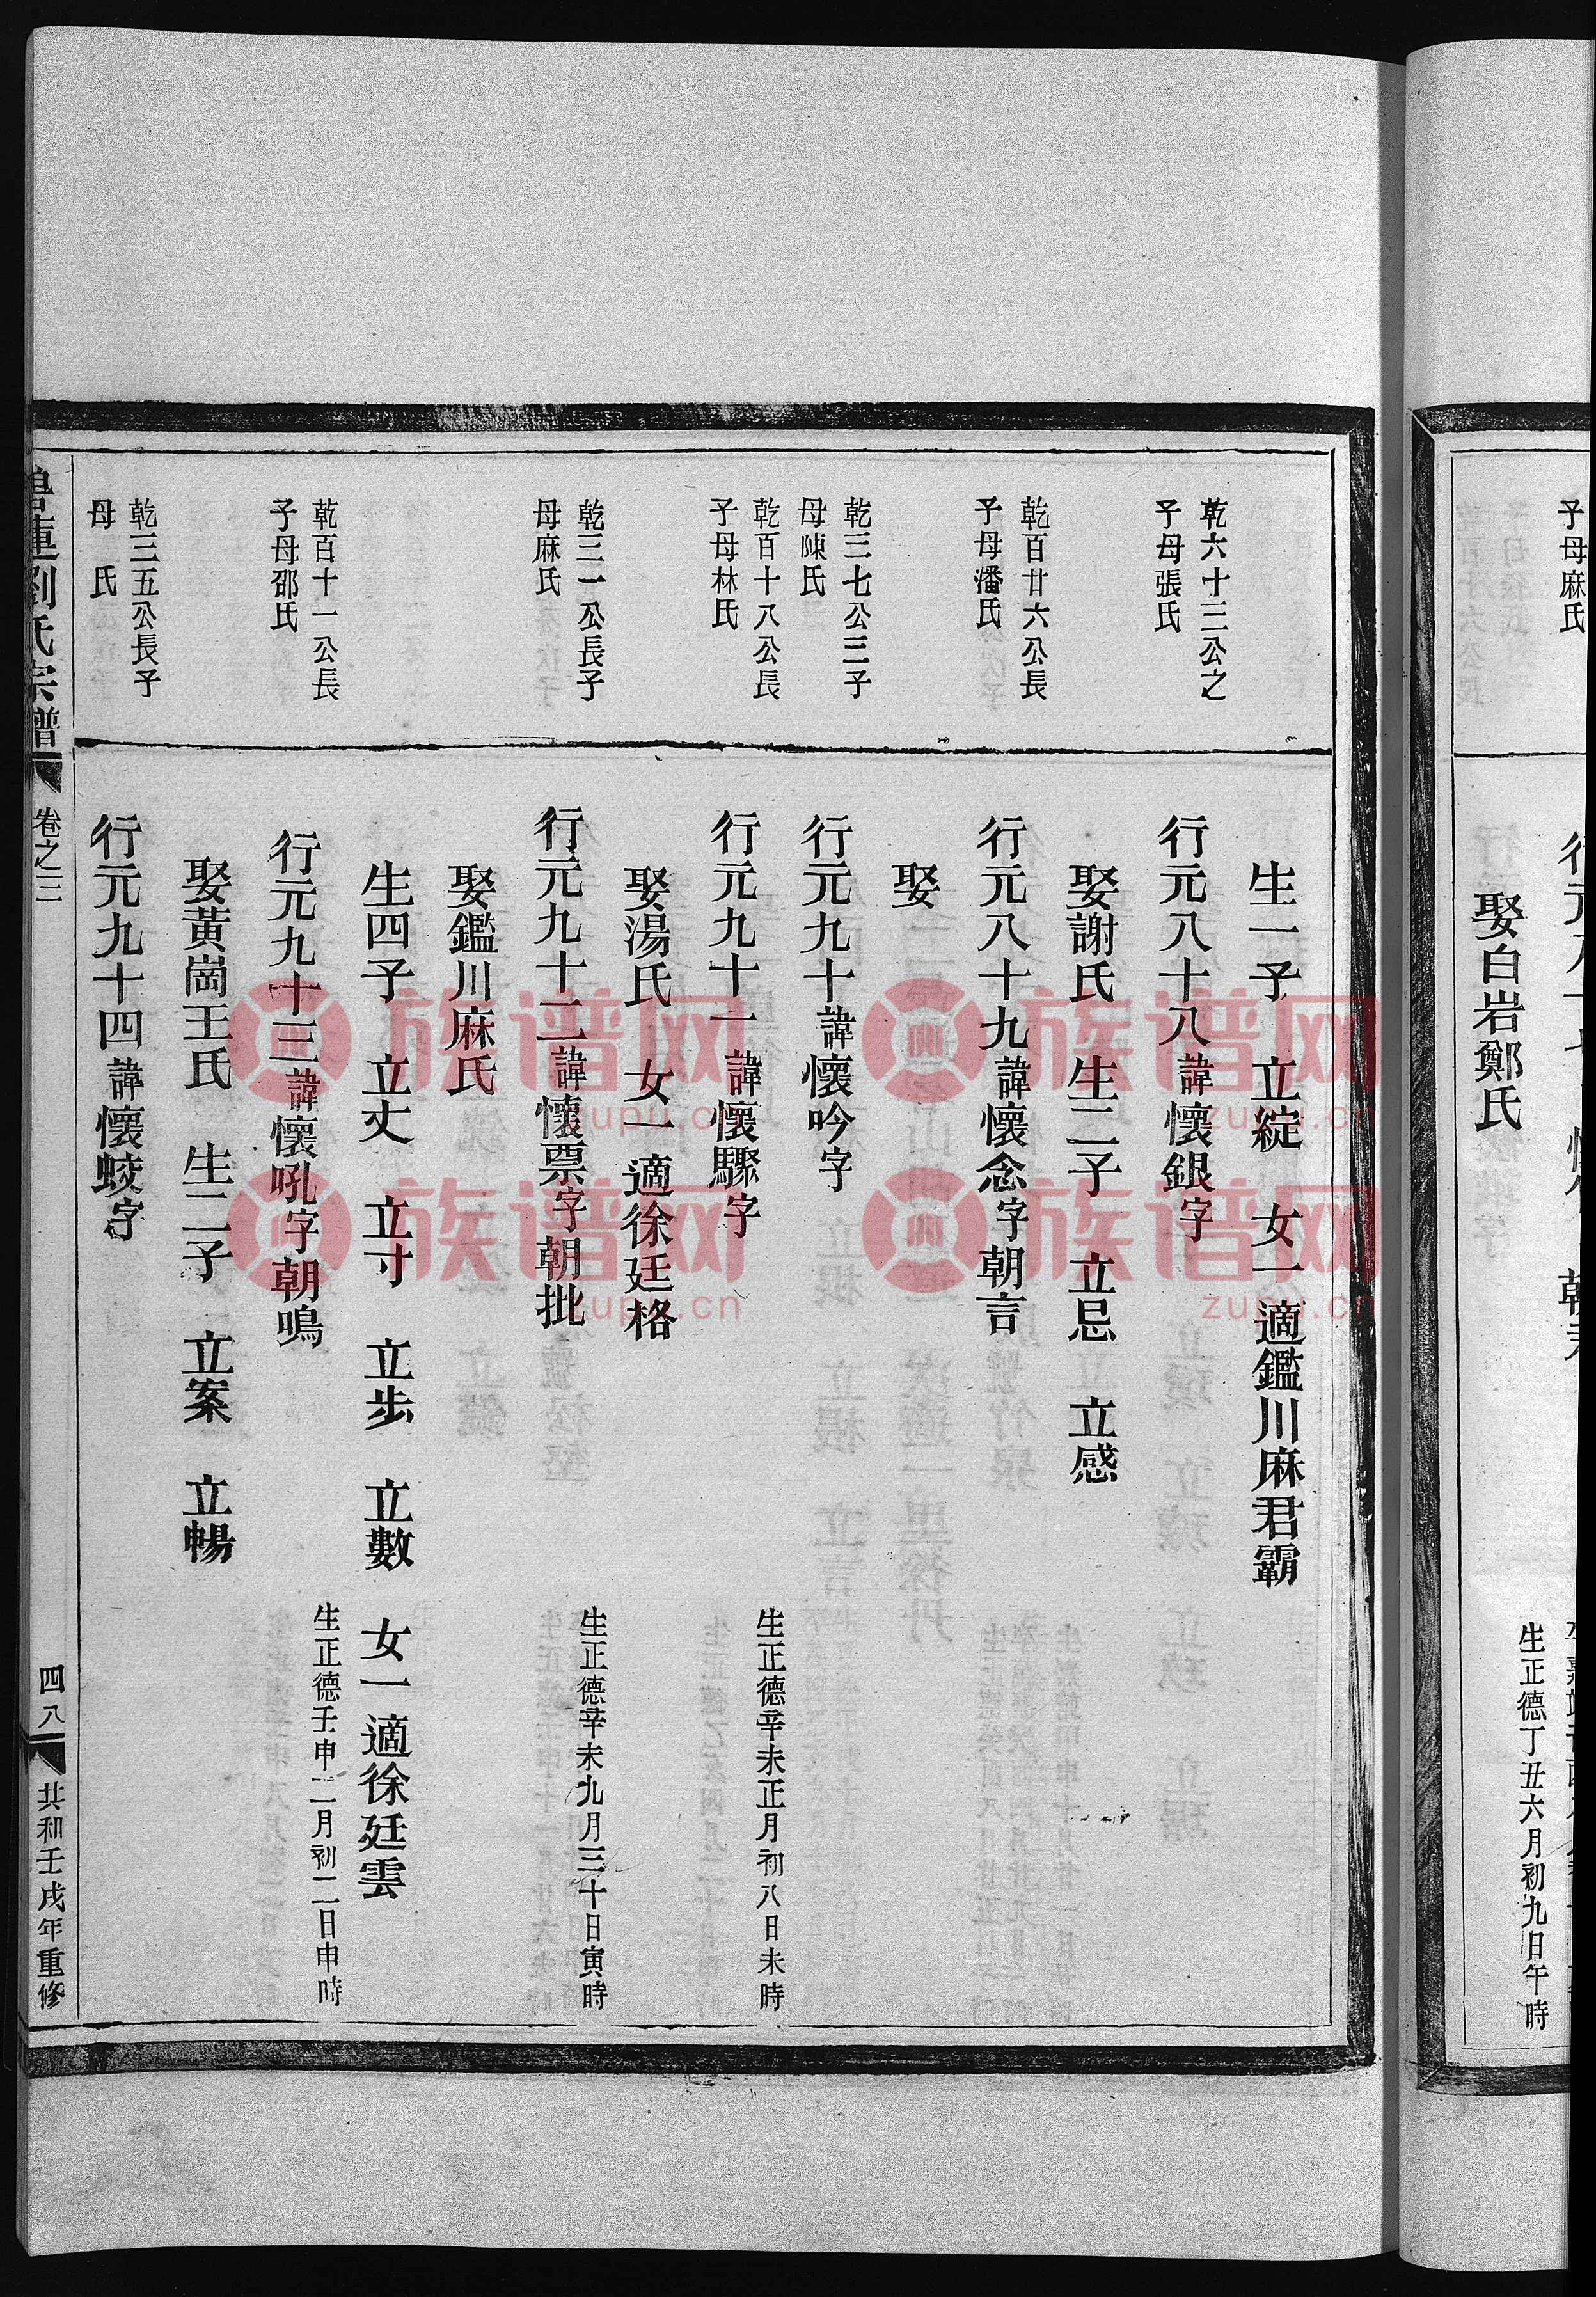 子母麻氏
娶白岩鄭氏
生正德丁丑六月初九日午時
生一子 立綻 女一適鑑川麻君霸
乾六十三公之
子母張氏
行元八十八諱懷銀字
娶謝氏 生二子 立忌 立感
乾百廿六公長
子母潘氏
行元八十九諱懷念字朝言
娶
乾三七公三子
母陳氏
行元九十諱懷吟字
乾百十八公長
子母林氏
行元九十一諱懷驟字
生正德辛未正月初八日未時
娶湯氏 女一適徐廷格
乾三一公長子
母麻氏
行元九十二諱懷票字朝批
生正德辛未九月三十日寅時
娶鑑川麻氏
生四子 立丈 立寸 立步 立數 女一適徐廷雲
乾百十一公長
子母邵氏
行元九十三諱懷吼字朝鳴
生正德壬申二月初二日申時
娶黃崗王氏 生二子 立案 立暢
乾三五公長子
母 氏
行元九十四諱懷蛟字
連劉氏宗譜 卷之三 四八 共和壬戌年重修
族谱网
zupu.cn
族谱网
zupu.cn
族谱网
zupu.cn
族谱网
zupu.cn